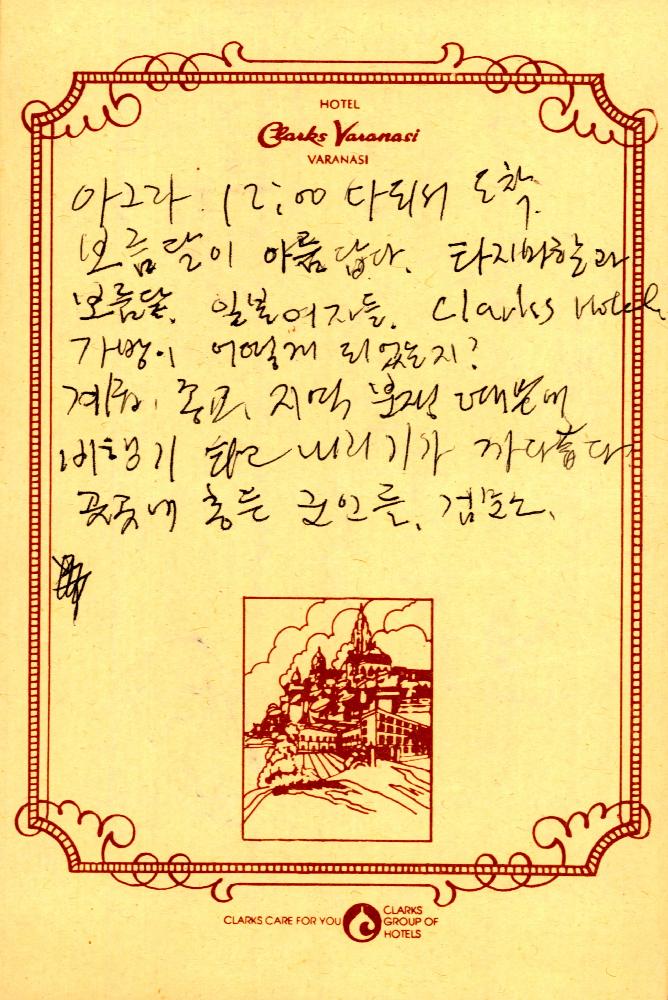 HOTEL
Clarks Varanasi
VARANASI
아그라 12:00 다되서 도착.
보름달이 아름답다. 타지마할과
보름달. 일본여자들. Clarks Hotel.
가방이 어떻게 되었는지?
계급, 종교, 지역 분쟁 때문에
비행기 타고 내리기가 까다롭다.
곳곳에 총든 군인들, 검문소.
CLARKS CARE FOR YOU
CLARKS
GROUP OF
HOTELS